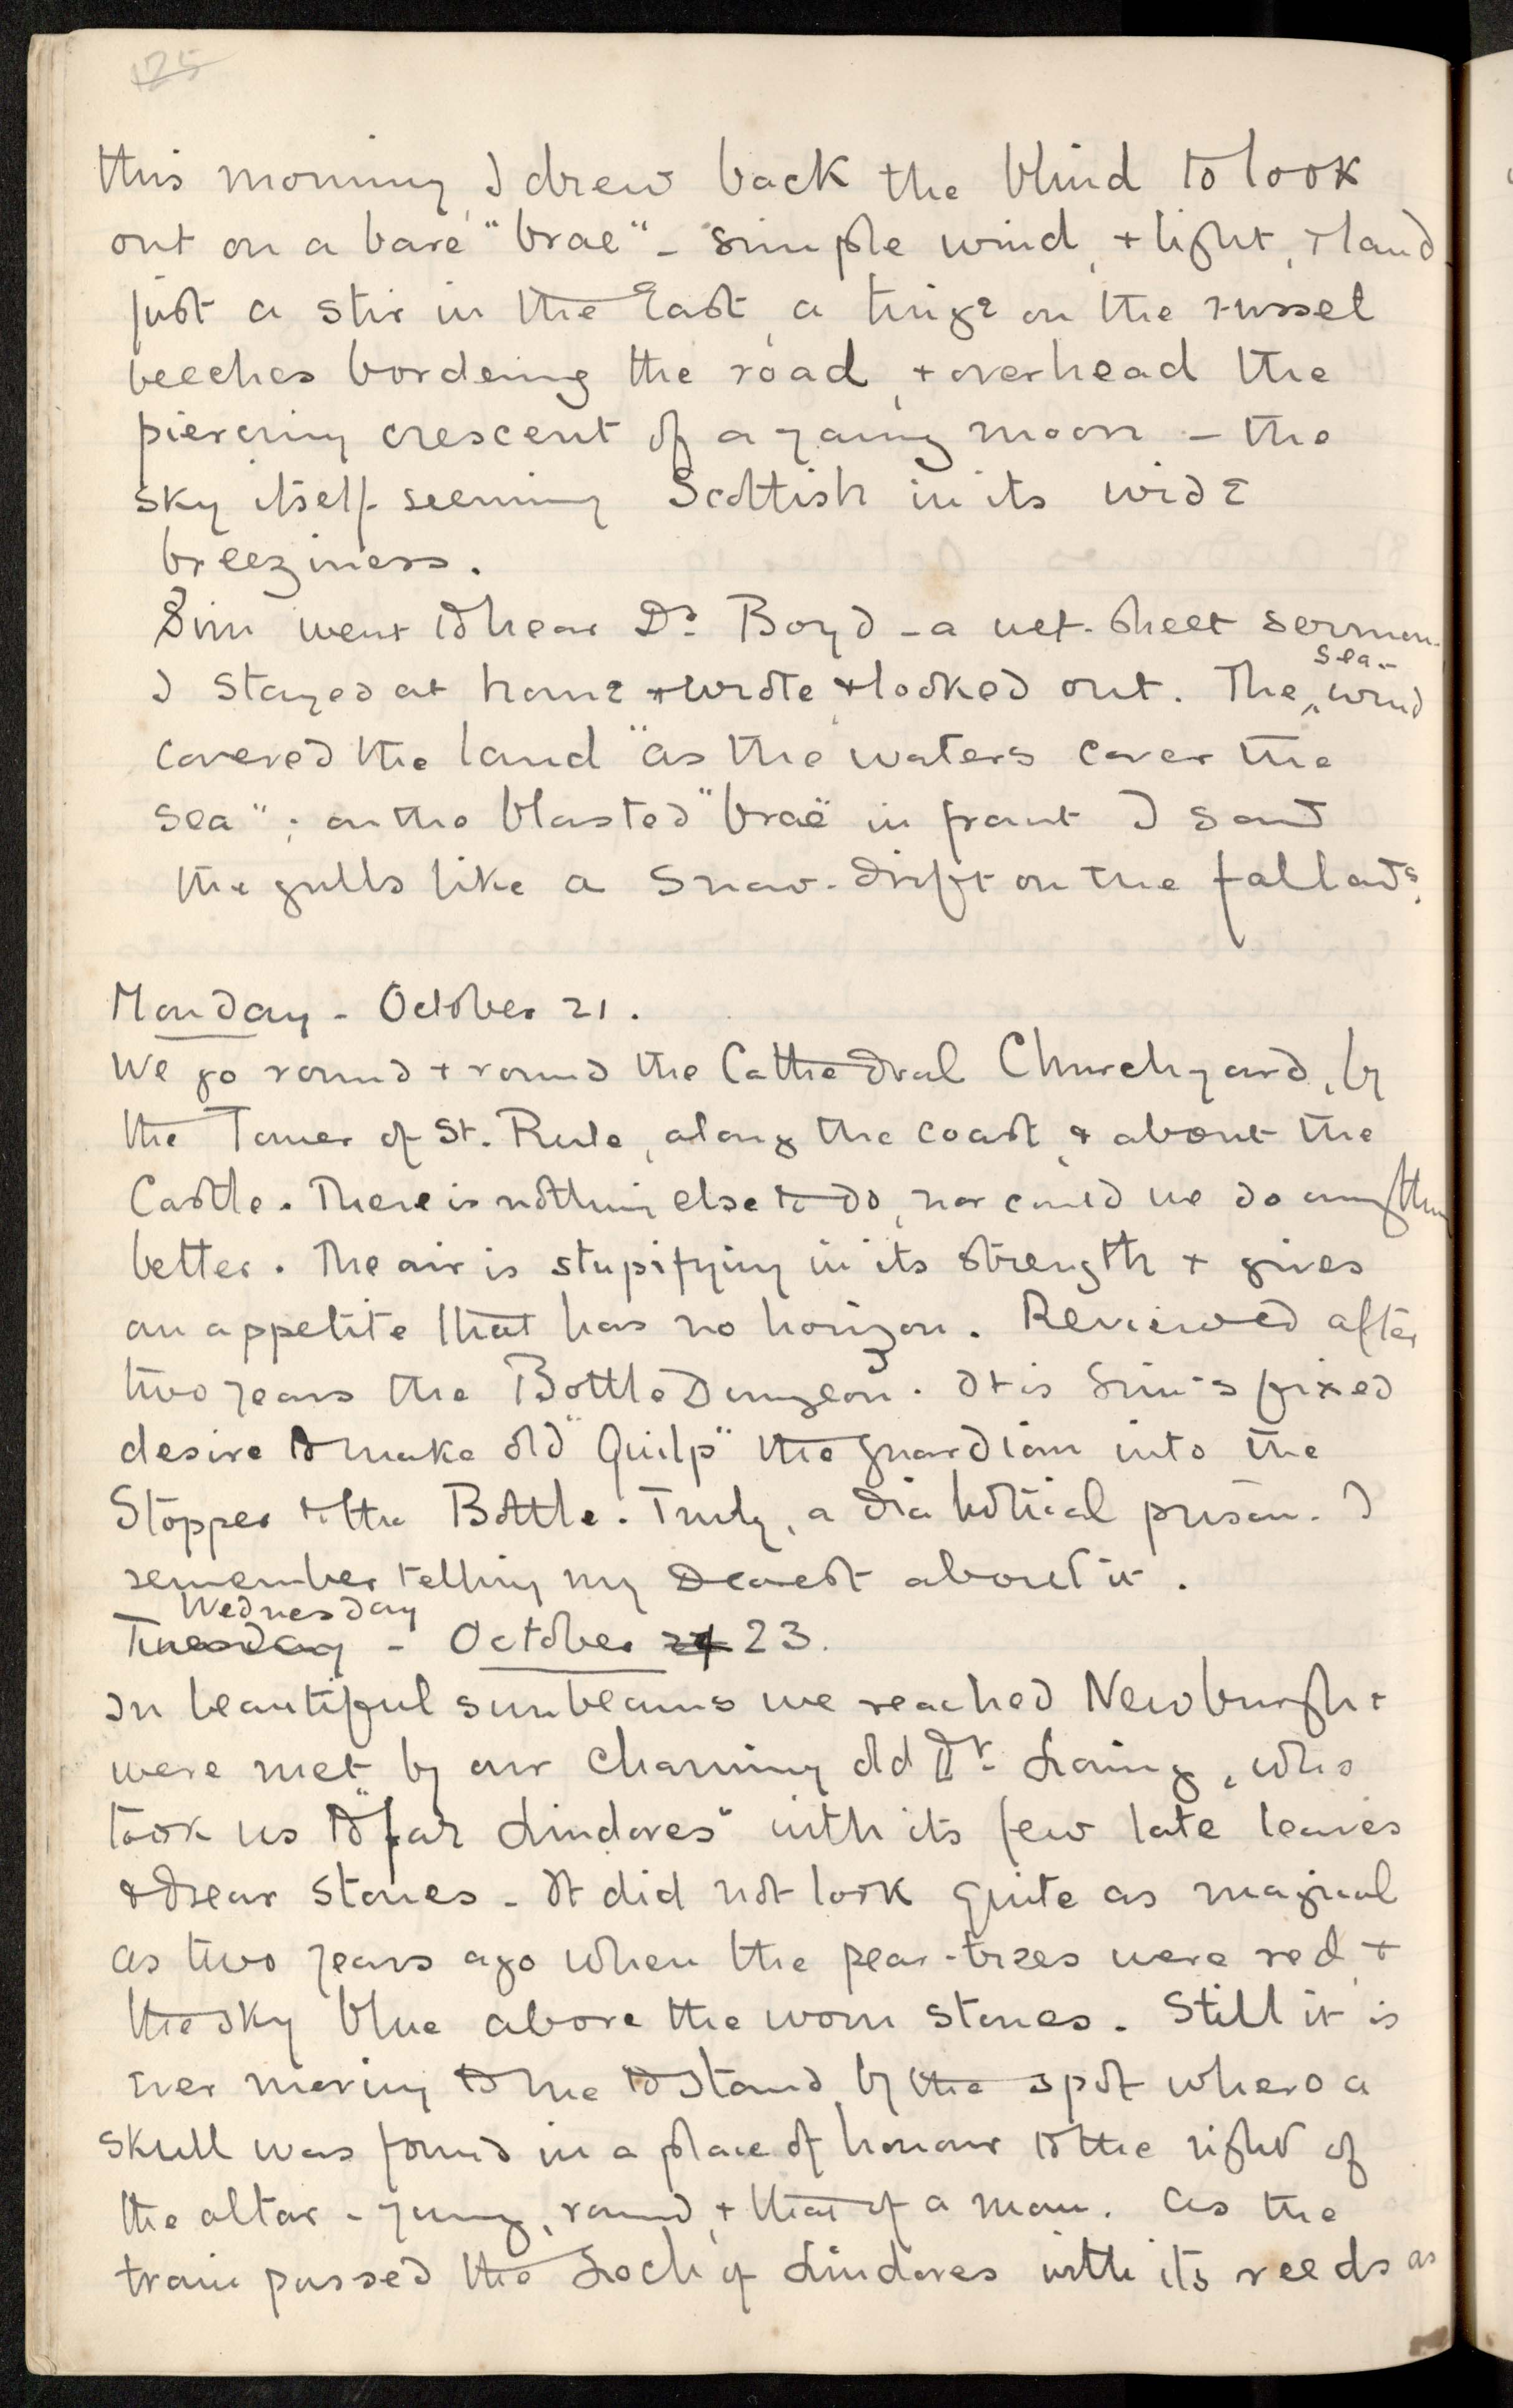 125
this morning, I drew back the blind to look
out on a bare "brae" - simple wind, + light, + land
just a stir in the East, a tinge on the russet
beeches bordering the road, + overhead the
piercing crescent of a young moon - the
sky itself seeming Scottish in its wide
breeziness.
Sim went to hear Dr. Boyd - a wet-sheet sermon.
I stayed at home + wrote + looked out. The sea-wind
covered the land "as the waters cover the
sea"; on the blasted "brae" in front I saw
the gulls like a snow-drift on the fallows.
Monday - October 21.
We go round + round the Cathedral Churchyard, by
the Tower of St. Rule, along the coast, & about the
Castle. There is nothing else to do, nor could we do anything
better. The air is stupifying in its strength + gives
an appetite that has no horizon. Reviewed after
two years the Bottle Dungeon. It is Sim's fixed
desire to make old "Quilp" the guardian into the
Stopper to the Bottle. Truly, a diabolical prison. I
remember telling my Dearest about it.
Wednesday
Tuesday - October 24 23.
In beautiful sunbeams we reached Newburgh +
were met by our charming old Dr. Laing, who
took us to "fair Lindores" with its few late leaves
& drear stones - It did not look quite as magical
as two years ago when the pear-trees were red, +
the sky blue above the worn stones. Still it is
ever moving to me to stand by the spot where a
skull was found in a place of honour to the right of
the altar - young, round, + that of a man. As the
train passed the Loch of Lindores with its reeds as